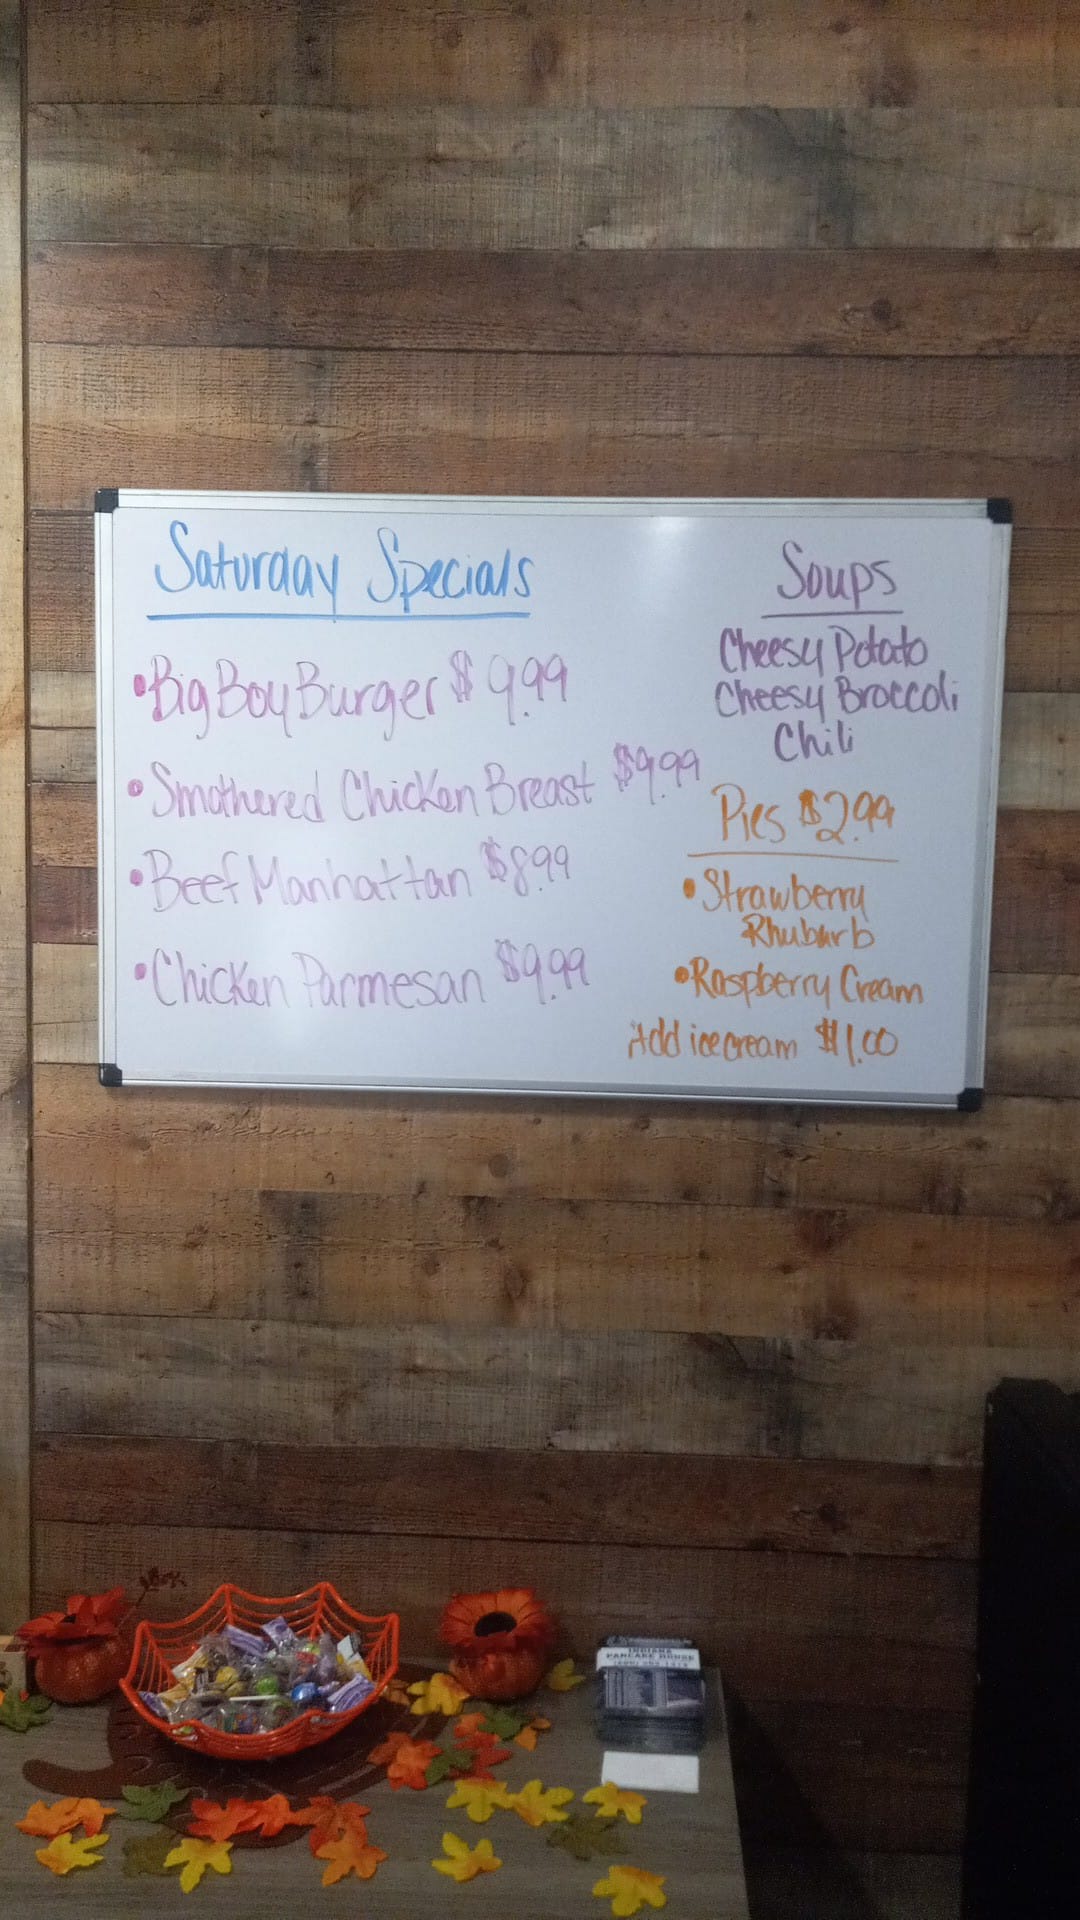 Saturday Specials
• Big Boy Burger $9.99
• Smothered Chicken Breast $9.99
• Beef Manhattan $8.99
• Chicken Parmesan $9.99
Soups
Cheesy Potato
Cheesy Broccoli
Chili
Pies $2.99
• Strawberry
Rhubarb
• Raspberry Cream
Add ice cream $1.00
INDIANA
PANCAKE HOUSE